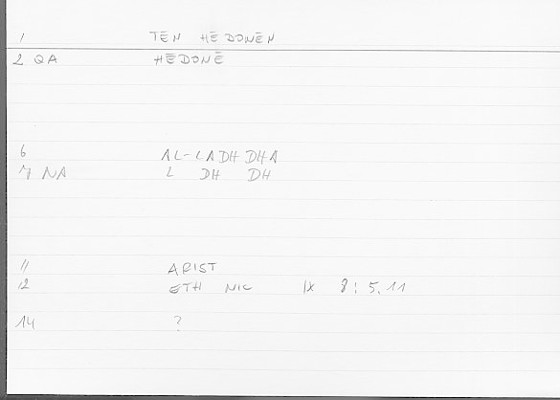 1 TĒN HĒDONĒN
2 QA HĒDONĒ
6 AL-LADHDHA
7 NA L DH DH
11 ARIST
12 ETH NIC IX 8: 5.11
14 ?